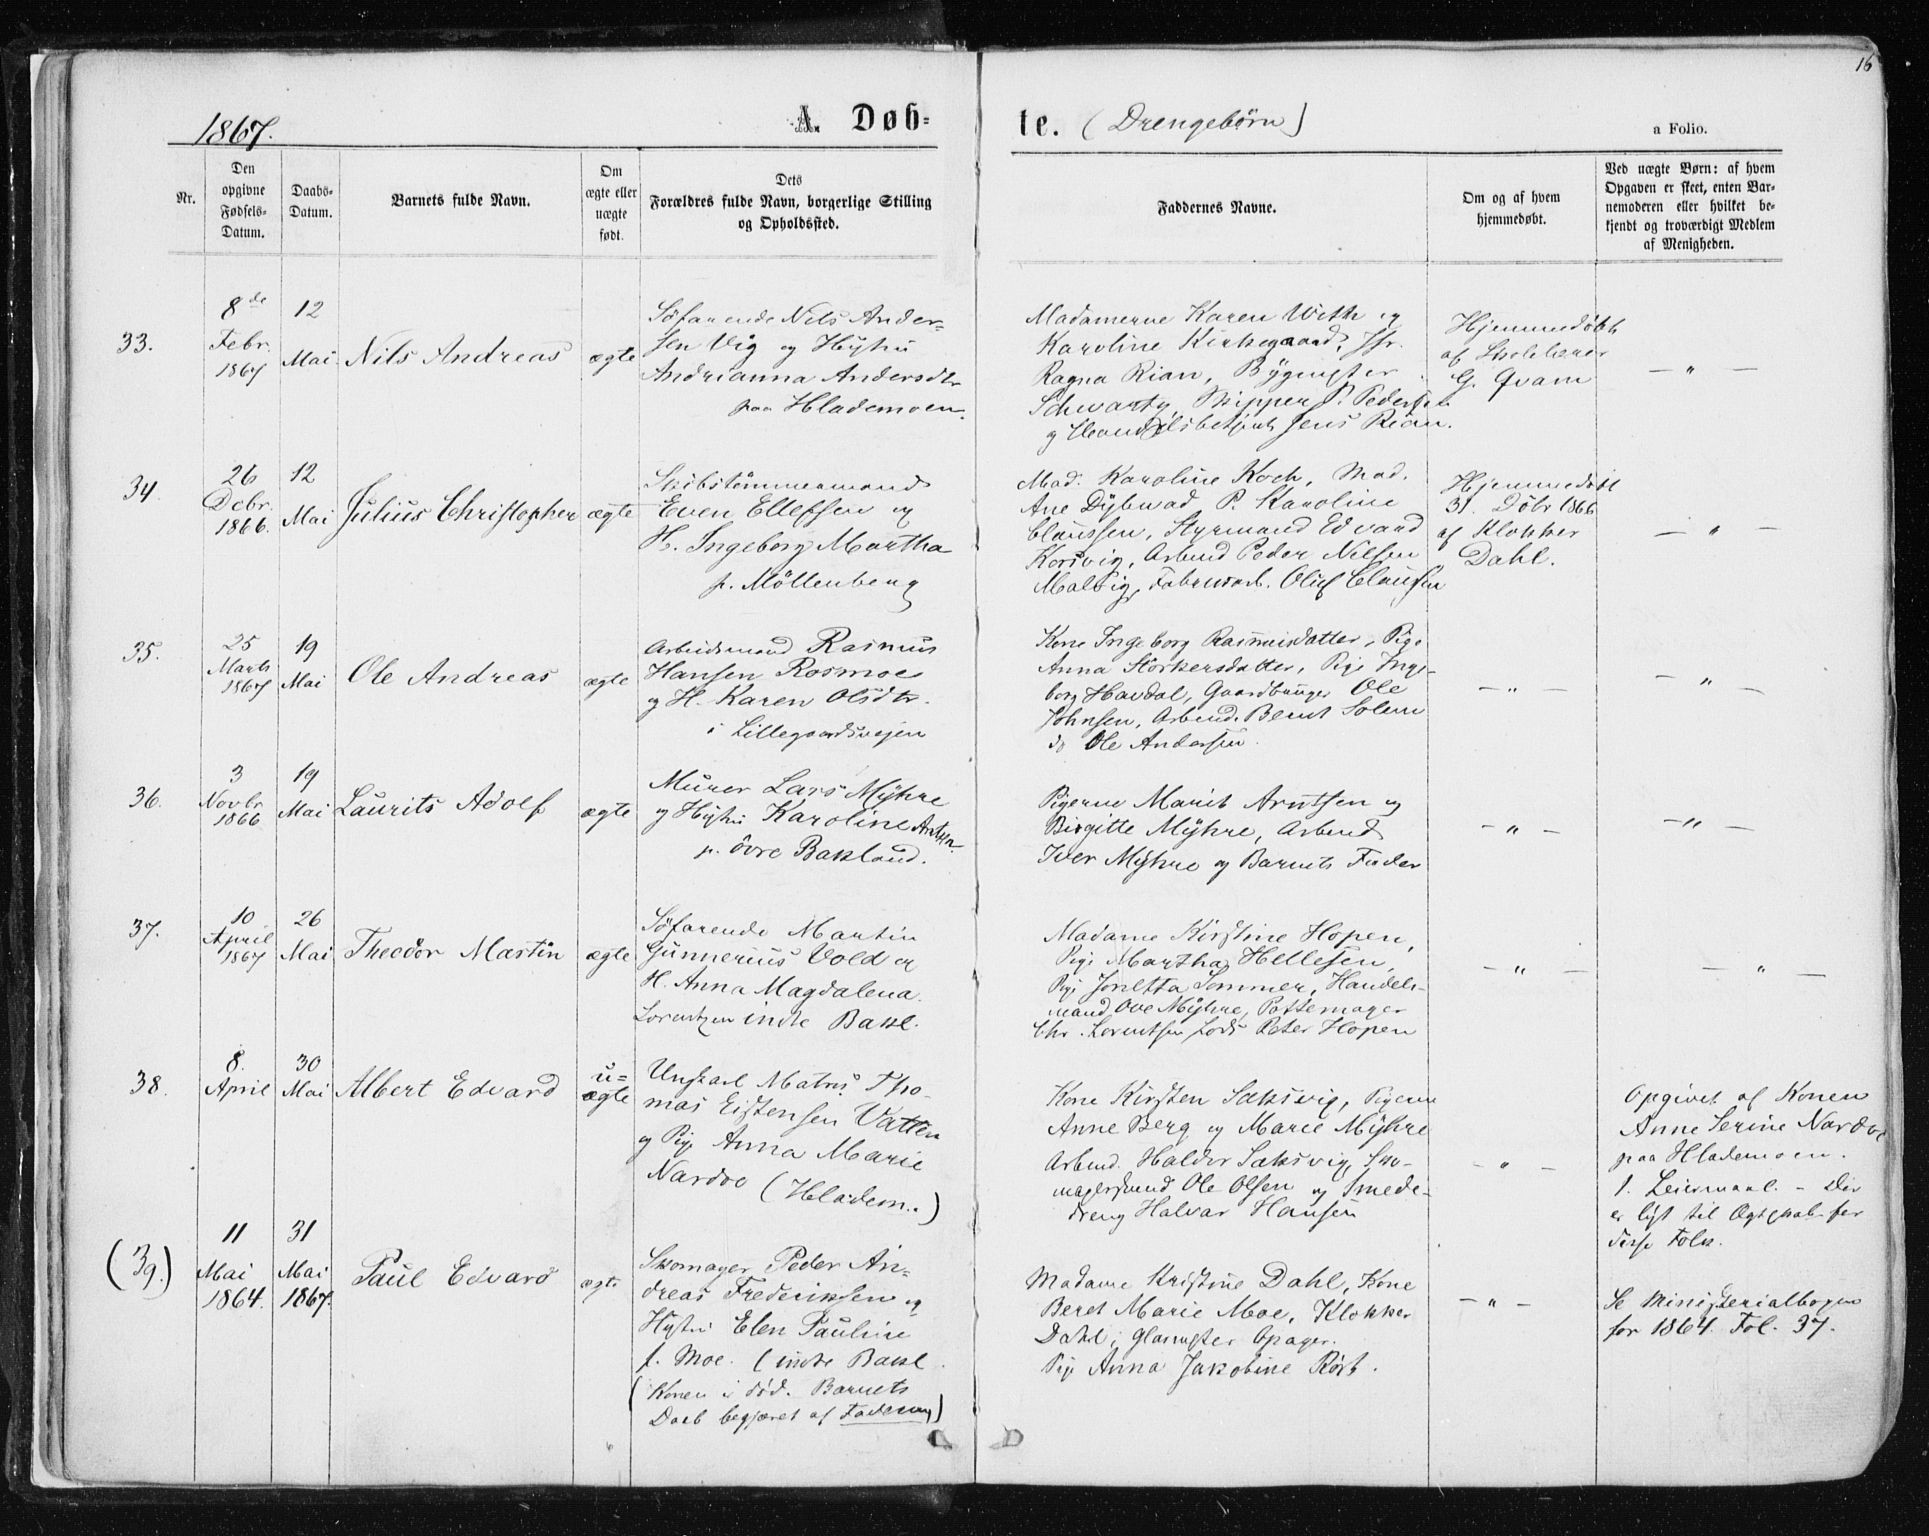 16
1867.
A. Døbte. (Drengebørn)
a Folio.
Nr.
Den opgivne Fødsels-Datum.
Daabs-Datum.
Barnets fulde Navn.
Om ægte eller uægte født.
Dets Forældres fulde Navn, borgerlige Stilling og Opholdssted.
Faddernes Navne.
Om og af hvem hjemmedøbt.
Ved uægte Børn: af hvem
Opgaven er skeet, enten Bar-
nemoderen eller hvilket be-
kjendt og troværdigt Medlem
af Menigheden.
33.
8de
Febr.
1867
12
Mai
Nils Andreas
ægte
Söfarende Nils Ander-
sen Vig og Hustru
Andrianna Andersdtr
paa Hlademoen.
Madamerne Karen With og
Karoline Kirkegaard, Jfr.
Ragna Rian, Bÿgmester
Schwartz, Skipper P. Pedersen
og Handelsbetjent Jens Rian.
Hjemmedöbt
af Skolelærer
G. Qvam
— " —
34.
26
Decbr.
1866.
12
Mai
Julius Christopher
ægte
Skibstömmermand
Even Ellefsen og
H. Ingeborg Martha
p. Möllenberg
Mad. Karoline Koch, Mad.
Ane Dÿbwad P. Karoline
Claussen, Styrmand Edvard
Korsvig, Arbmd Peder Nilsen
Malvig, Oluf Clausen
Hjemmedöbt
31. Dcbr 1866
af Klokker
Dahl.
— " —
35.
25
Marts
1867
19
Mai
Ole Andreas
ægte
Arbeidsmand Rasmus
Hansen Rosmoe
og H. Karen Olsdtr.
i Lillegaardsvejen
Kone Ingeborg Rasmusdatter, Pige
Anna Störkersdatter, Pige Inge-
borg Havdal, Gaardbruger Ole
Johnsen, Arbmd. Bernt Solem
do Ole Andersen.
— " —
— " —
36.
3
Novbr
1866
19
Mai
Laurits Adolf
ægte
Murer Lars Mÿhre
og Hustru Karoline Arntsen
p. övre Bakland.
Pigerne Marit Arntsen og
Birgitte Mÿhre, Arbmd
Iver Mÿhre og Barnets Fader
— " —
— " —
37.
10
April
1867
26
Mai
Theodor Martin
ægte
Söfarende Martin
Gunnerius Vold og
H. Anna Magdalena
Lorentzen indre Bakl.
Madame Kirstine Hopen,
Pige Martha Hellesen,
Pige Jonetta Sommer, Handels-
mand Ove Mÿhre, Pottemager
Chr. Lorentsen Lods Peter Hopen
— " —
— " —
38.
8.
April
30
Mai
Albert Edvard
u=
ægte
Ungkarl Matros Tho-
mas Eistensen Vatten
og Pige Anna Marie
Nardvo (Hladem.)
Kone Kirsten Saksvig, Pigerne
Anne Berg og Marie Mÿhre
Arbmd. Haldor Saksvig, Sko-
magersvend Ole Olsen og Smede-
dreng Halvar Hansen
— " —
Opgivet af Konen
Anne Serine Nardvo
paa Hlademoen.
1. Leiermaal. – Der
er lyst til Ægteskab for
disse Folk.
(39.)
11
Mai
1864.
31
Mai
1867.
Paul Edvard
ægte
Skomager Peder An-
dreas Frederiksen og
Hustru Elen Pauline
f. Moe. (indre Bakl.
(Konen er död. Barnets
Daab begjæret af Faderen)
Madame Kristine Dahl, Kone
Beret Marie Moe, Klokker
Dahl, Glarmester Opager.
Pige Anna Jakobine Röst.
— " —
Se Ministerialbogen
for 1864. Fol. 37.